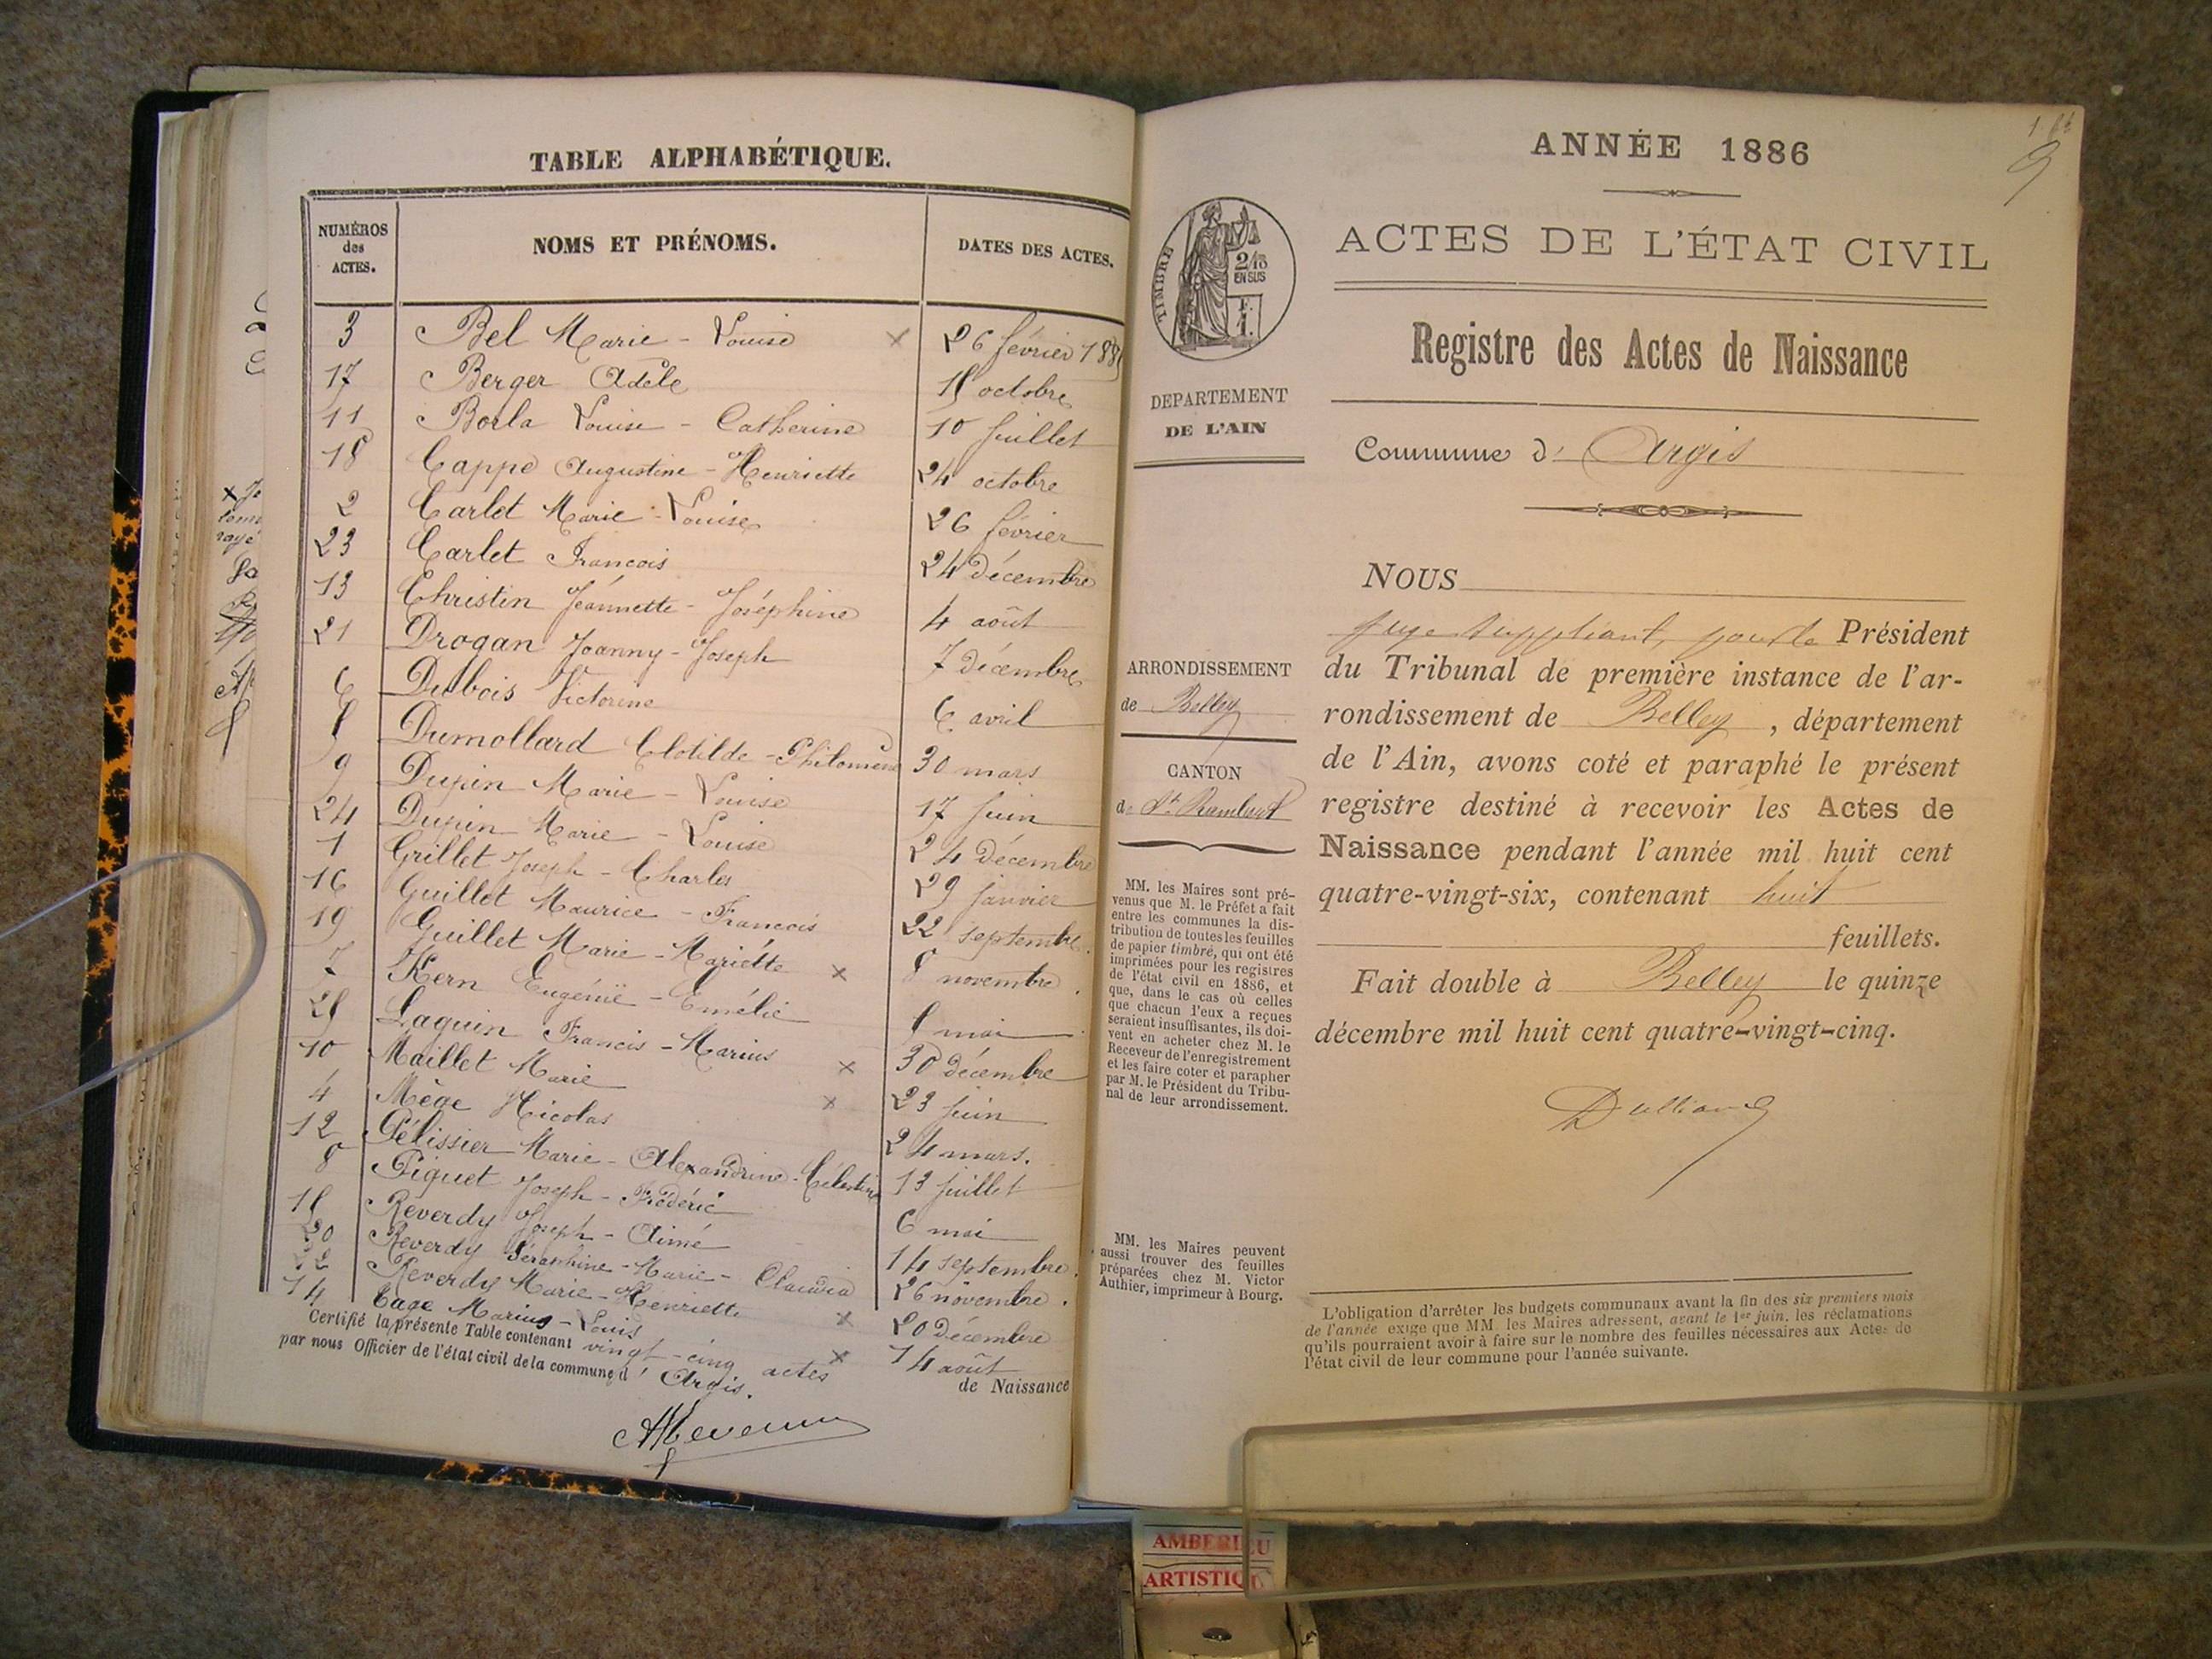 TABLE ALPHABÉTIQUE.
NUMÉROS des ACTES.
NOMS ET PRÉNOMS.
DATES DES ACTES.
3 Bel Marie - Louise × 26 février 188
17 Berger Adèle 15 octobre
11 Borla Louise - Catherine 10 juillet
18 Cappe Augustine - Henriette 24 octobre
2 Carlet Marie - Louise 26 février
23 Carlet Francois 24 décembre
13 Christin Jeannette - Joséphine 4 août
21 Drogan Joanny - Joseph 7 décembre
6 Dubois Victorine 6 avril
5 Dumollard Clotilde - Philomène 30 mars
9 Dupin Marie - Louise 17 juin
24 Dupin Marie - Louise 24 décembre
1 Grillet Joseph - Charles 29 janvier
16 Guillet Maurice - Francois 22 septembre.
19 Guillet Marie - Mariette × 8 novembre.
7 Kern Eugénie - Emélie 5 mai
25 Laguin Francis - Marius × 30 décembre
10 Maillet Marie × 23 juin
4 Mège Nicolas 24 mars.
12 Pélissier Marie - Alexandrine - Célestine 13 juillet
8 Piguet Joseph - Frédéric 6 mai
15 Reverdy Joseph - Aimé 14 septembre.
20 Reverdy Séraphine - Marie - Claudia 26 novembre.
22 Reverdy Marie - Henriette × 20 décembre
14 Cage Marius - Louis × 14 août
Certifié la présente Table contenant vingt-cinq actes de Naissance
par nous Officier de l'état civil de la commune d' Argis.
ANNÉE 1886
ACTES DE L'ÉTAT CIVIL
TIMBRE
2/10
EN SUS
F.
1.
Registre des Actes de Naissance
DEPARTEMENT
DE L'AIN
Commune d' Argis
NOUS
juge suppléant, pour le Président
du Tribunal de première instance de l'ar-
rondissement de Belley, département
de l'Ain, avons coté et paraphé le présent
registre destiné à recevoir les Actes de
Naissance pendant l'année mil huit cent
quatre-vingt-six, contenant huit
feuillets.
Fait double à Belley le quinze
décembre mil huit cent quatre-vingt-cinq.
ARRONDISSEMENT
de Belley
CANTON
de St Rambert
MM. les Maires sont pré-
venus que M. le Préfet a fait
entre les communes la dis-
tribution de toutes les feuilles
de papier timbré, qui ont été
imprimées pour les registres
de l'état civil en 1886, et
que, dans le cas où celles
que chacun d'eux a reçues
seraient insuffisantes, ils doi-
vent en acheter chez M. le
Receveur de l'enregistrement
et les faire coter et parapher
par M. le Président du Tribu-
nal de leur arrondissement.
MM. les Maires peuvent
aussi trouver des feuilles
préparées chez M. Victor
Authier, imprimeur à Bourg.
L'obligation d'arrêter les budgets communaux avant la fin des six premiers mois
de l'année exige que MM. les Maires adressent, avant le 1er juin, les réclamations
qu'ils pourraient avoir à faire sur le nombre des feuilles nécessaires aux Actes de
l'état civil de leur commune pour l'année suivante.
AMBERIEU
ARTISTIQ